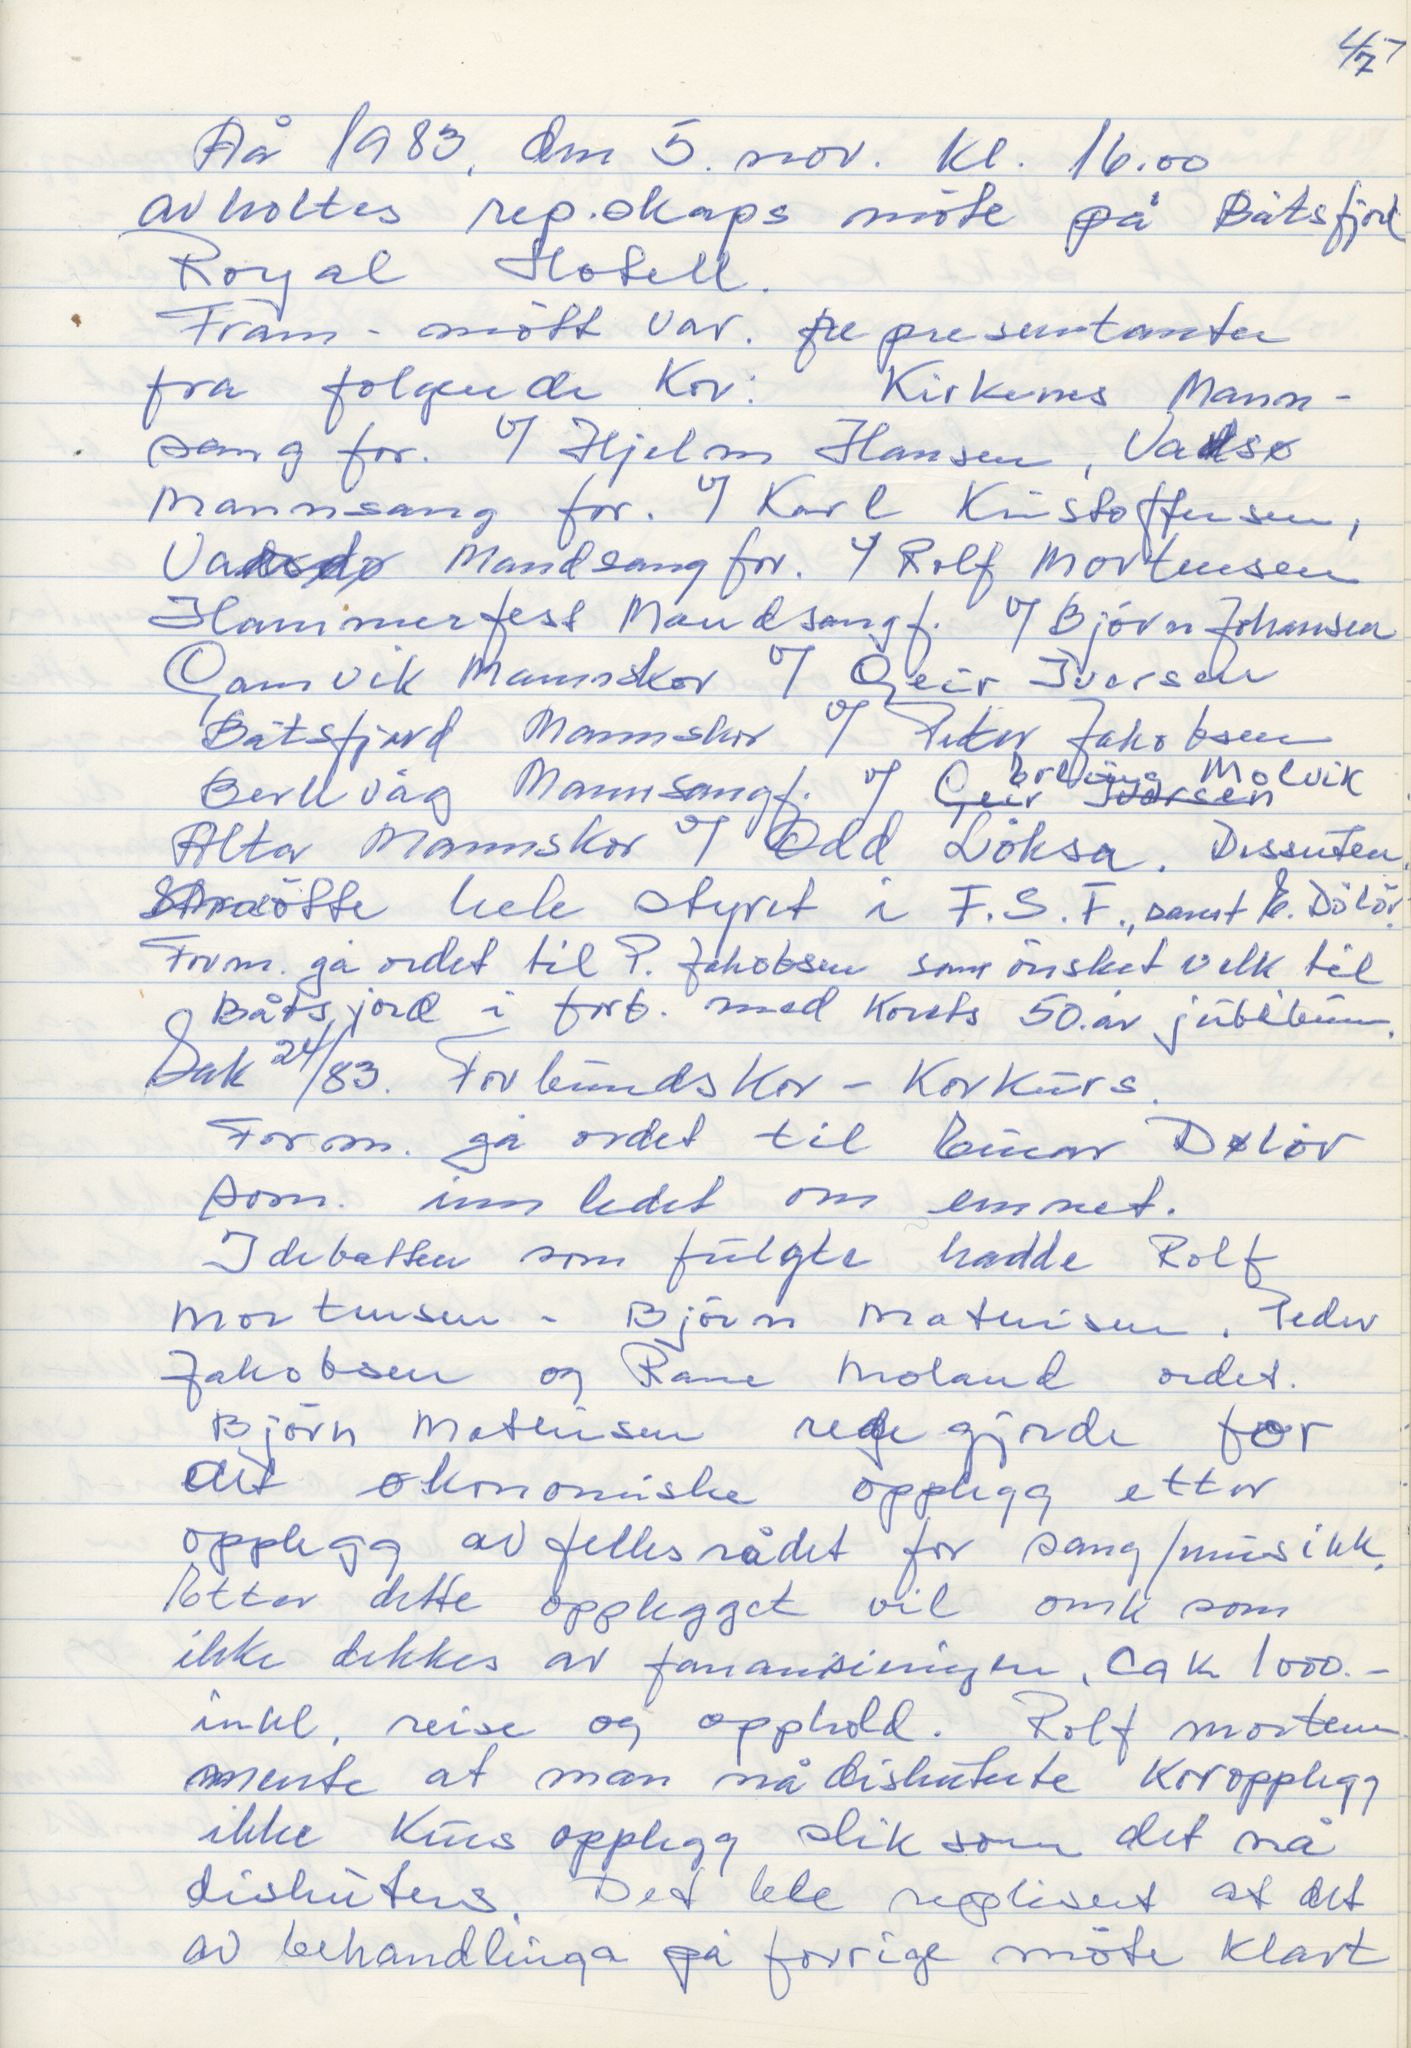 47
År 1983, den 5. nov. kl. 16.00
avholtes rep.skaps möte på Båtsfjord
Royal Hotell.
Fram-mött var. representanter
fra folgende Kor: Kirkenes Mann-
sang for. v/ Hjelm Hansen, Vadsø
Mannsang for. v/ Karl Kristoffersen,
Mandsangfor. v/ Rolf Mortensen
Hammerfest Mandsangf. v/ Björn Johansen
Gamvik Mannskor v/ Geir Iversen
Båtsfjord Mannskor v/ Peder Jakobsen
Berlevåg Mannsangf. v/ Geir Iversen Erling Molvik
Alta Mannskor v/ Odd Löksa. Dessuten
møtte hele styret i F.S.F., samt E. Dölör.
Form. ga ordet til P. Jakobsen som önsket velk til
Båtsfjord i forb. med Korets 50.år jubileum.
Sak 24/83. Forbundskor - Korkurs.
Form. ga ordet til Einar Dølör
som. innledet om emnet.
I debatten som fulgte hadde Rolf
Mortensen - Björn Mathisen. Peder
Jakobsen og Rane Moland ordet.
Björn Mathisen redegjorde for
det økonomiske opplegg etter
opplegg av fellesrådet for sang/musikk.
Etter dette opplegget vil omk som
ikke dekkes av fanansieringen. Ca k 1000.-
inkl. reise og opphold. Rolf Morten
mente at man nå diskuterte Koropplegg
ikke Kursopplegg slik som det nå
diskuters. Det ble replisert at det
av behandlinga på forrige möte klart